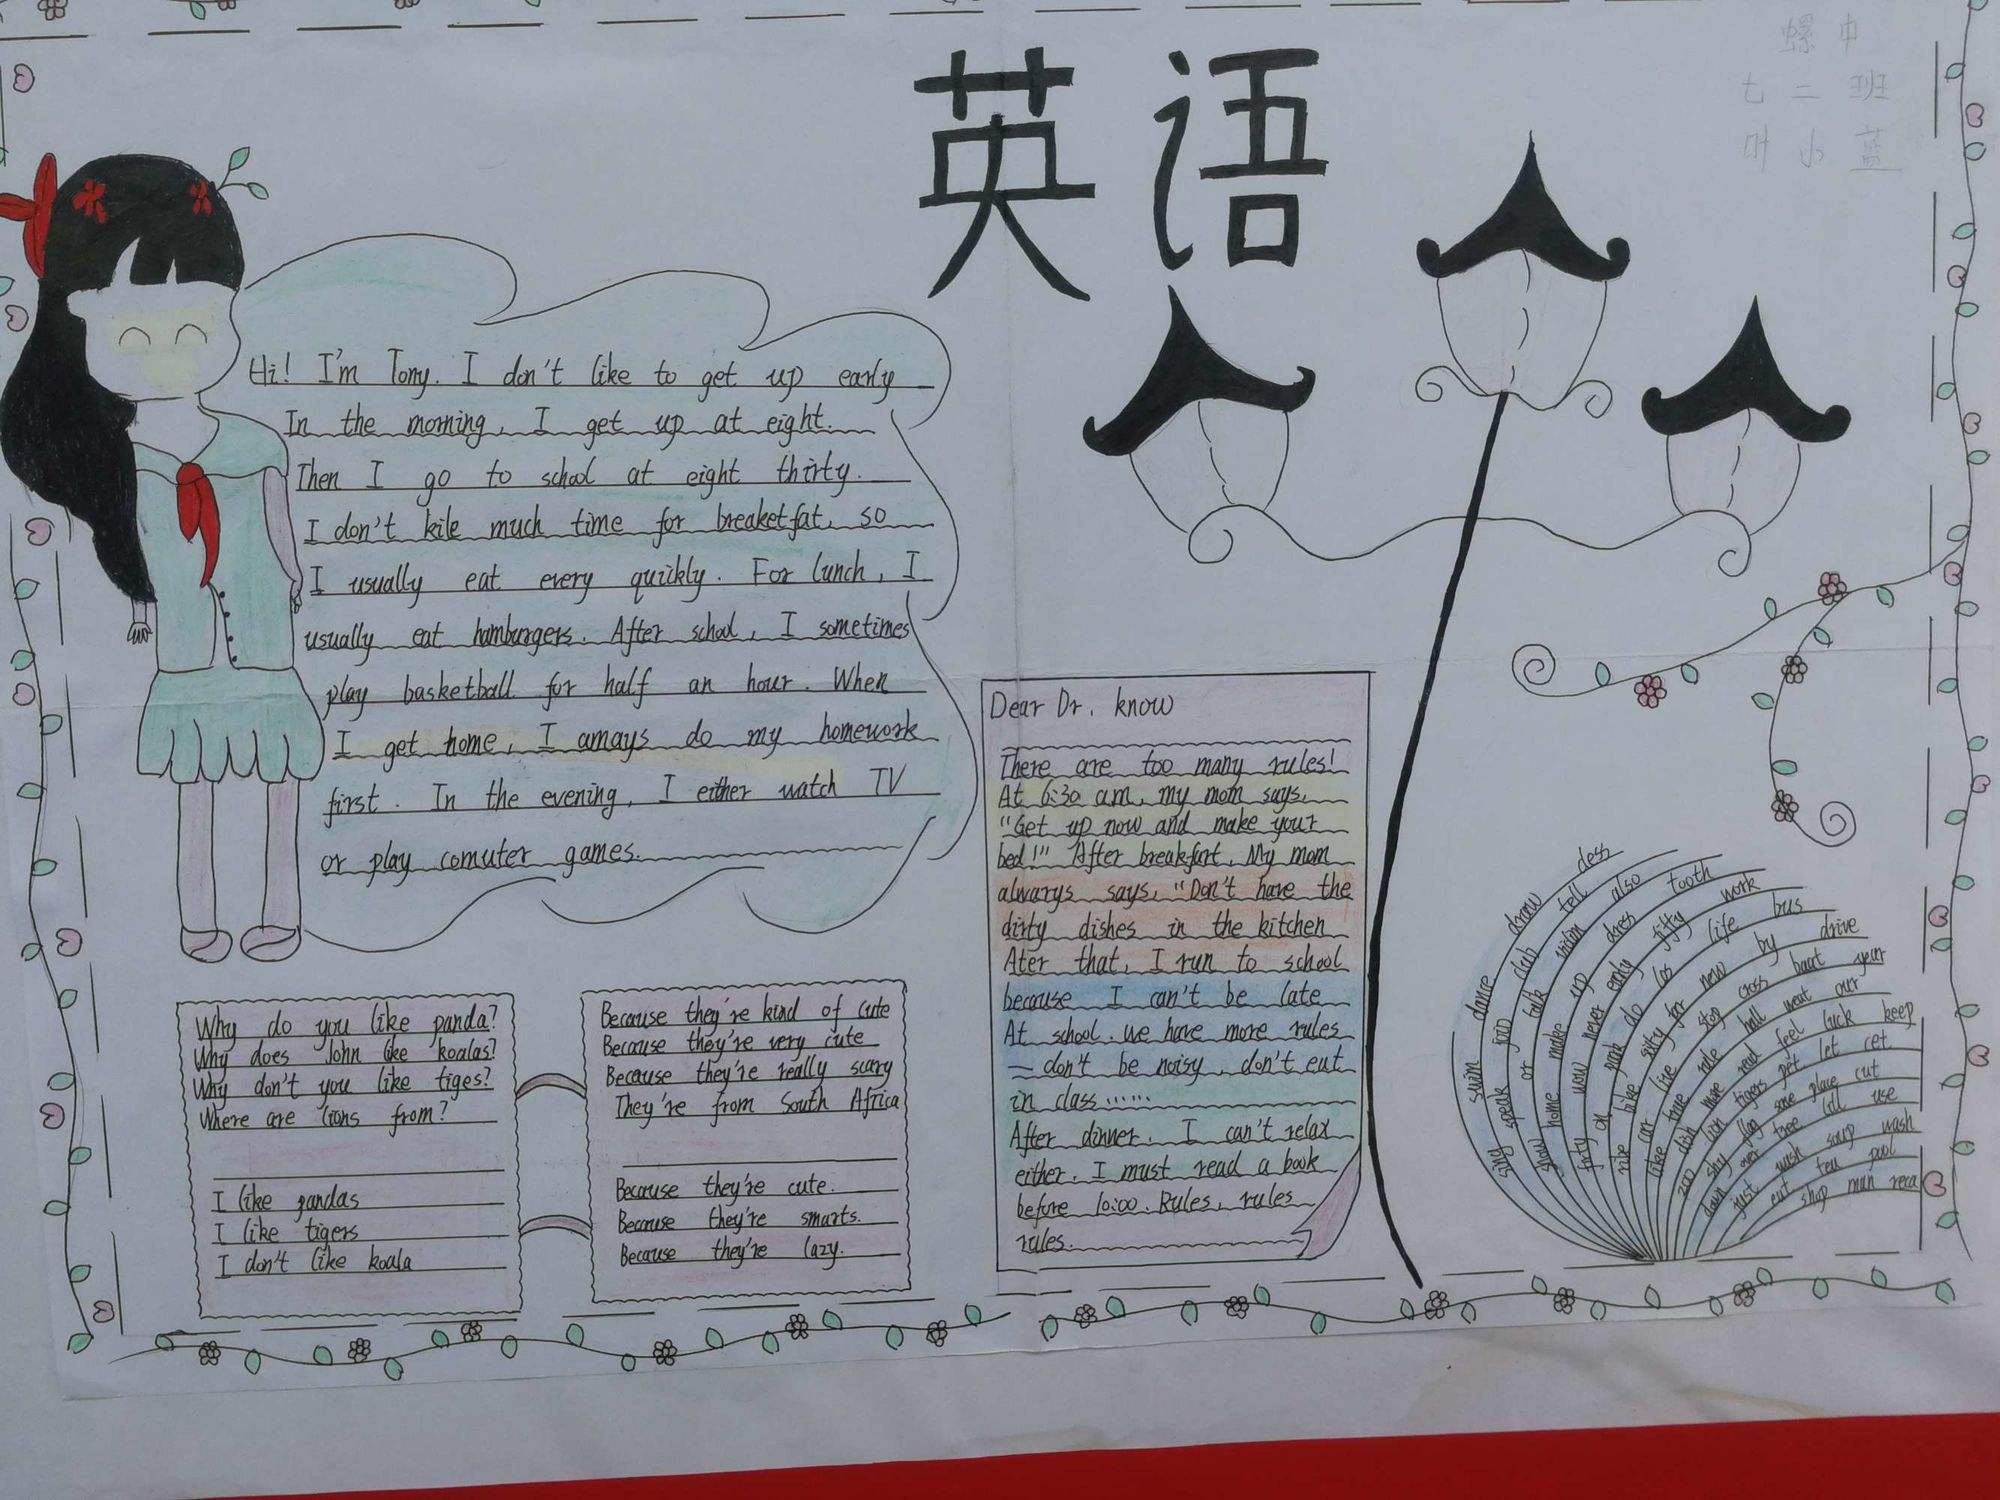 英语
螺中
七二班
叶小蓝
Hi! I'm Tony. I don't like to get up early
In the morning, I get up at eight.
Then I go to school at eight thirty.
I don't kile much time for breaketfat, so
I usually eat every quickly. For lunch, I
usually eat hamburgers. After school, I sometimes
play basketball for half an hour. When
I get home, I amays do my homework
first. In the evening, I either watch TV
or play comuter games.
Why do you like panda?
Why does John like koalas?
Why don't you like tiges?
Where are lions from?
I like pandas
I like tigers
I don't like koala
Because they're kind of cute
Because they're very cute
Because they're really scary
They're from South Africa
Because they're cute.
Because they're smarts.
Because they're lazy.
Dear Dr. know
There are too many rules!
At 6:30 am, my mom says,
"Get up now and make your
bed!" After breakfart, My mom
alwarys says, "Don't have the
dirty dishes in the kitchen
Ater that, I run to school
because I can't be late
At school, we have more rules
— don't be noisy, don't eat
in class……
After dinner, I can't relax
either. I must read a book
before 10:00. Rules, rules
rules.
swim dance draw dess
sing speak join club tell also
slow or talk tooth
home make up dress work
forty now never only fifty bus
life
by drive
new
stop cross boat year
hall meat our
feel luck keep
tigers pet let cet
same place cut
flag use
over tree
wash soup wash
just tea pool
eat shop man